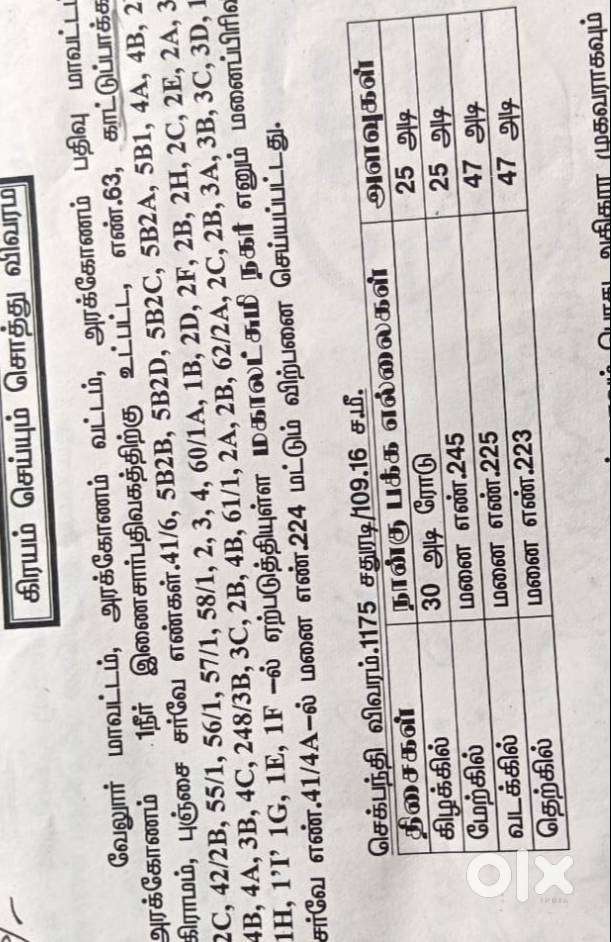 கிரயம் செய்யும் சொத்து விவரம்
வேலூர் மாவட்டம், அரக்கோணம் வட்டம், அரக்கோணம் பதிவு மாவட்ட
அரக்கோணம் 1நீர் இணைசார்பதிவகத்திற்கு உட்பட்ட, எண்.63, காட்டுப்பாக்க
கிராமம், புஞ்சை சர்வே எண்கள்.41/6, 5B2B, 5B2D, 5B2C, 5B2A, 5B1, 4A, 4B, 2
2C, 42/2B, 55/1, 56/1, 57/1, 58/1, 2, 3, 4, 60/1A, 1B, 2D, 2F, 2B, 2H, 2C, 2E, 2A, 3
4B, 4A, 3B, 4C, 248/3B, 3C, 2B, 4B, 61/1, 2A, 2B, 62/2A, 2C, 2B, 3A, 3B, 3C, 3D, 1
1H, 1'I' 1G, 1E, 1F –ல் ஏற்படுத்தியுள்ள மகாலட்சுமி நகர் எனும் மனைப்பிரிவ
சர்வே எண்.41/4A–ல் மனை எண்.224 மட்டும் விற்பனை செய்யப்பட்டது.
செக்பந்தி விவரம்.1175 சதுரடி/109.16 ச.மீ.
திசைகள் நான்கு பக்க எல்லைகள் அளவுகள்
கிழக்கில் 30 அடி ரோடு 25 அடி
மேற்கில் மனை எண்.245 25 அடி
வடக்கில் மனை எண்.225 47 அடி
தெற்கில் மனை எண்.223 47 அடி
olx
INDIA